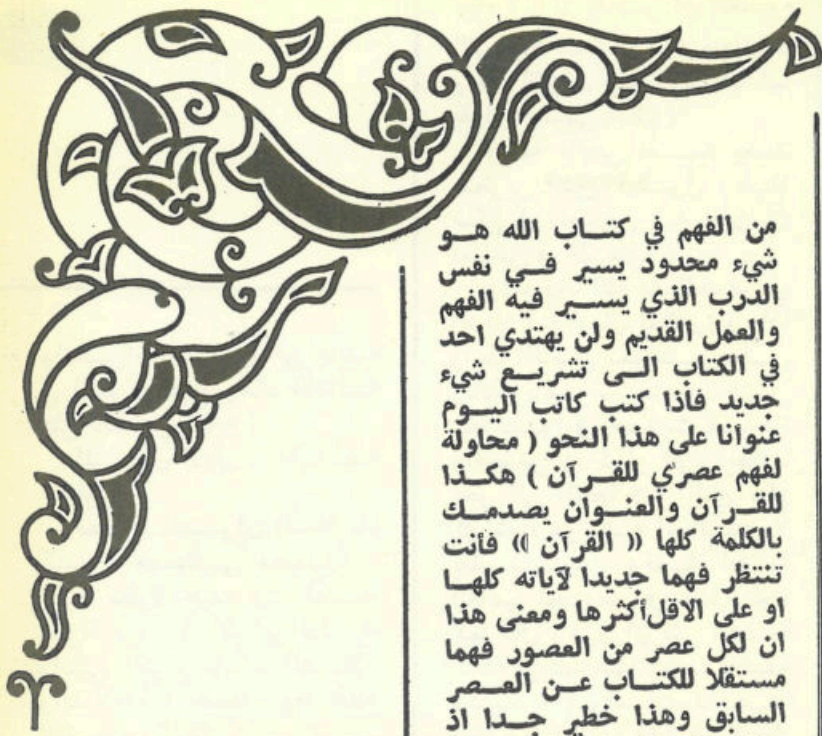 من الفهم في كتـــاب الله هـــو
شيء محدود يسير فـــي نفس
الدرب الذي يســـير فيه الفهم
والعمل القديم ولن يهتدي احد
في الكتاب الـــى تشريـــع شيء
جديد فاذا كتب كاتب اليـــوم
عنوانا على هذا النحو ( محاولة
لفهم عصري للقـــرآن ) هكـــذا
للقـــرآن والعنـــوان يصدمـــك
بالكلمة كلها (( القرآن )) فأنت
تنتظر فهما جديدا لآياته كلهـــا
او على الاقل أكثرها ومعنى هذا
ان لكل عصر من العصور فهما
مستقلا للكتـــاب عـــن العـــصر
السابق وهذا خطير جـــدا اذ